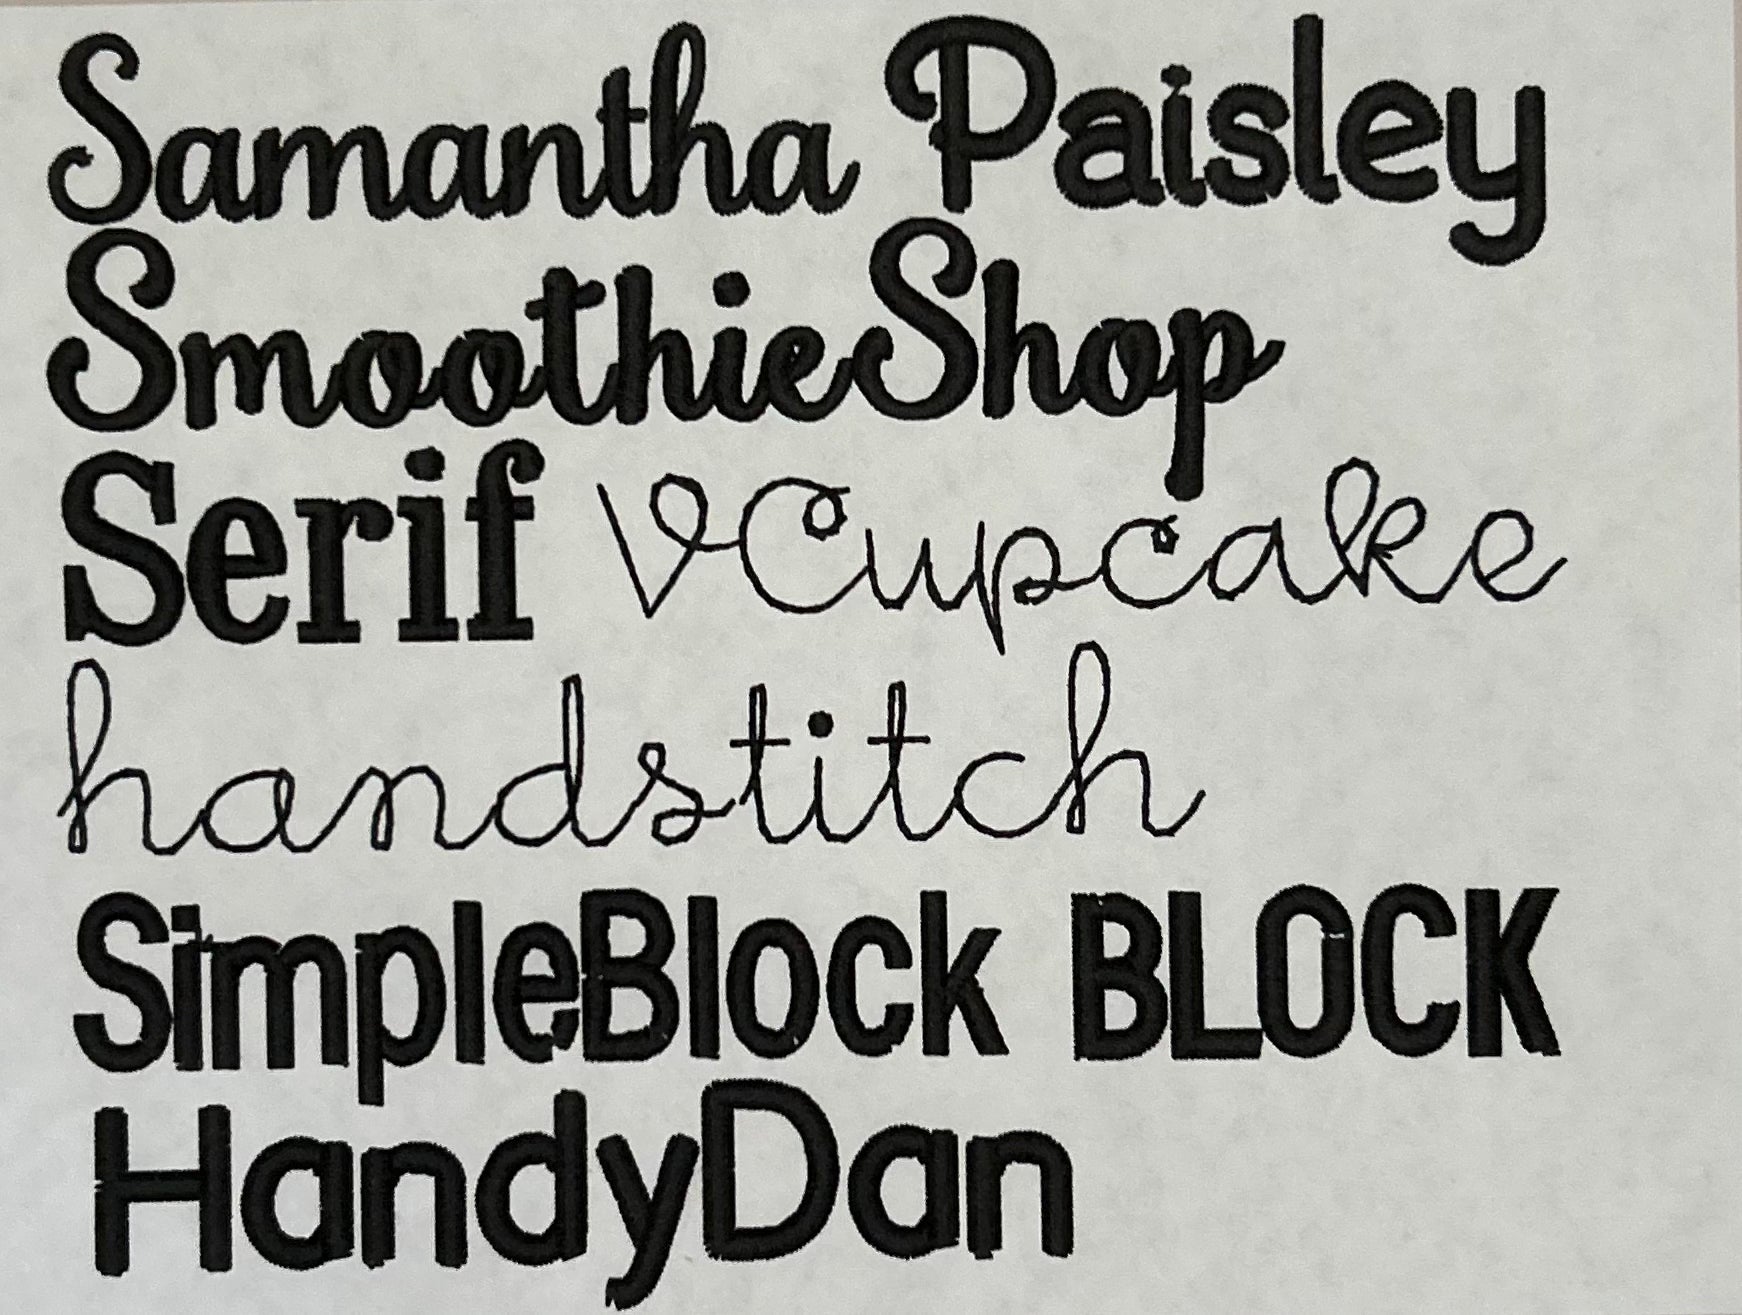 Samantha Paisley
SmoothieShop
Serif VCupcake
handstitch
SimpleBlock BLOCK
HandyDan